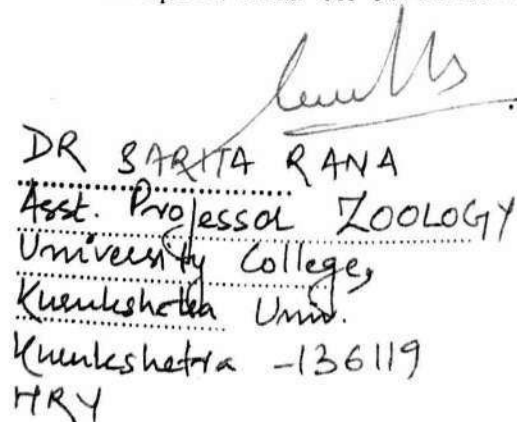 DR SARITA RANA
Asst. Professor ZOOLOGY
University College,
Kurukshetra Univ.
Kurukshetra -136119
HRY